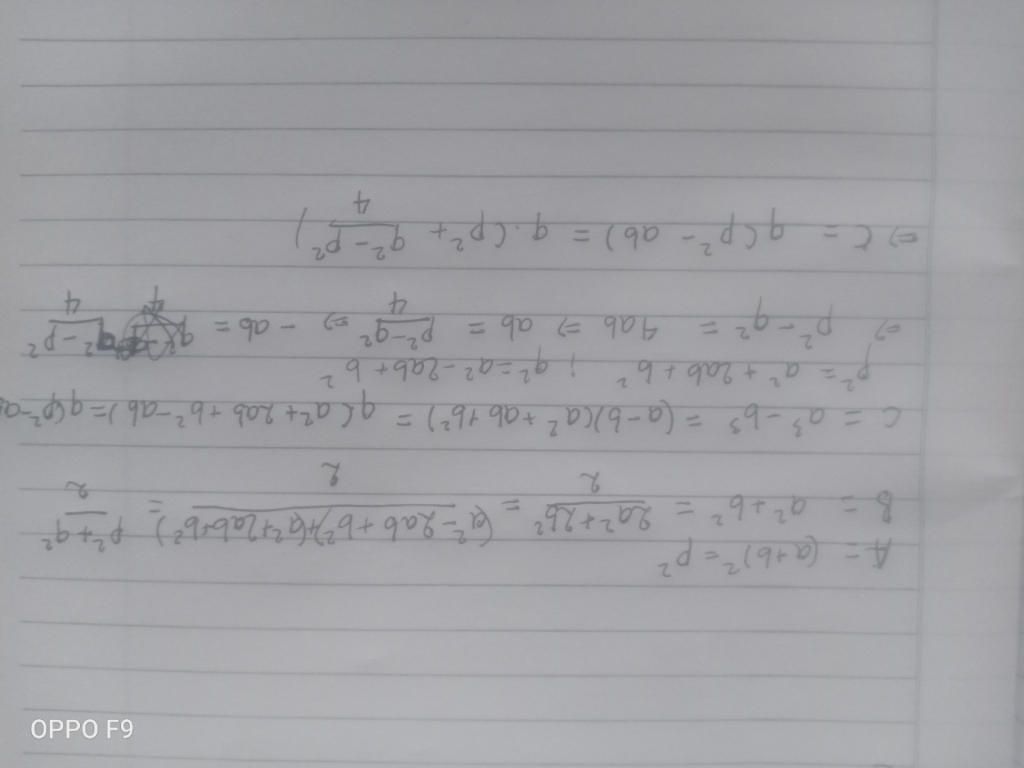 A = (a+b)² = p²
B = a² + b² = (2a² + 2b²)/2 = ((a² - 2ab + b²) + (a² + 2ab + b²))/2 = (p² + q²)/2
C = a³ - b³ = (a-b)(a² + ab + b²) = q(a² + 2ab + b² - ab) = q(p² - a
p² = a² + 2ab + b² ; q² = a² - 2ab + b²
⇒ p² - q² = 4ab ⇒ ab = (p² - q²)/4 ⇒ - ab = (q² - p²)/4
⇒ C = q(p² - ab) = q.(p² + (q² - p²)/4)
OPPO F9